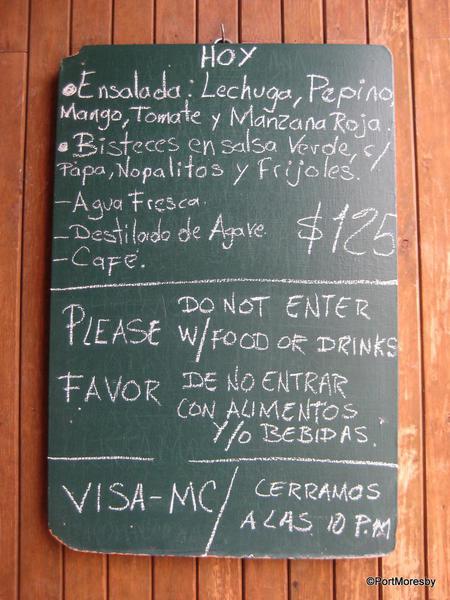 HOY
• Ensalada: Lechuga, Pepino,
Mango, Tomate y Manzana Roja.
• Bisteces en salsa Verde, c/
Papa, Nopalitos y Frijoles.
- Agua Fresca.
- Destilado de Agave. $125
- Café.
PLEASE DO NOT ENTER
W/FOOD OR DRINKS
FAVOR DE NO ENTRAR
CON ALIMENTOS
Y/O BEBIDAS.
VISA-MC / CERRAMOS
A LAS 10 P.M
©PortMoresby